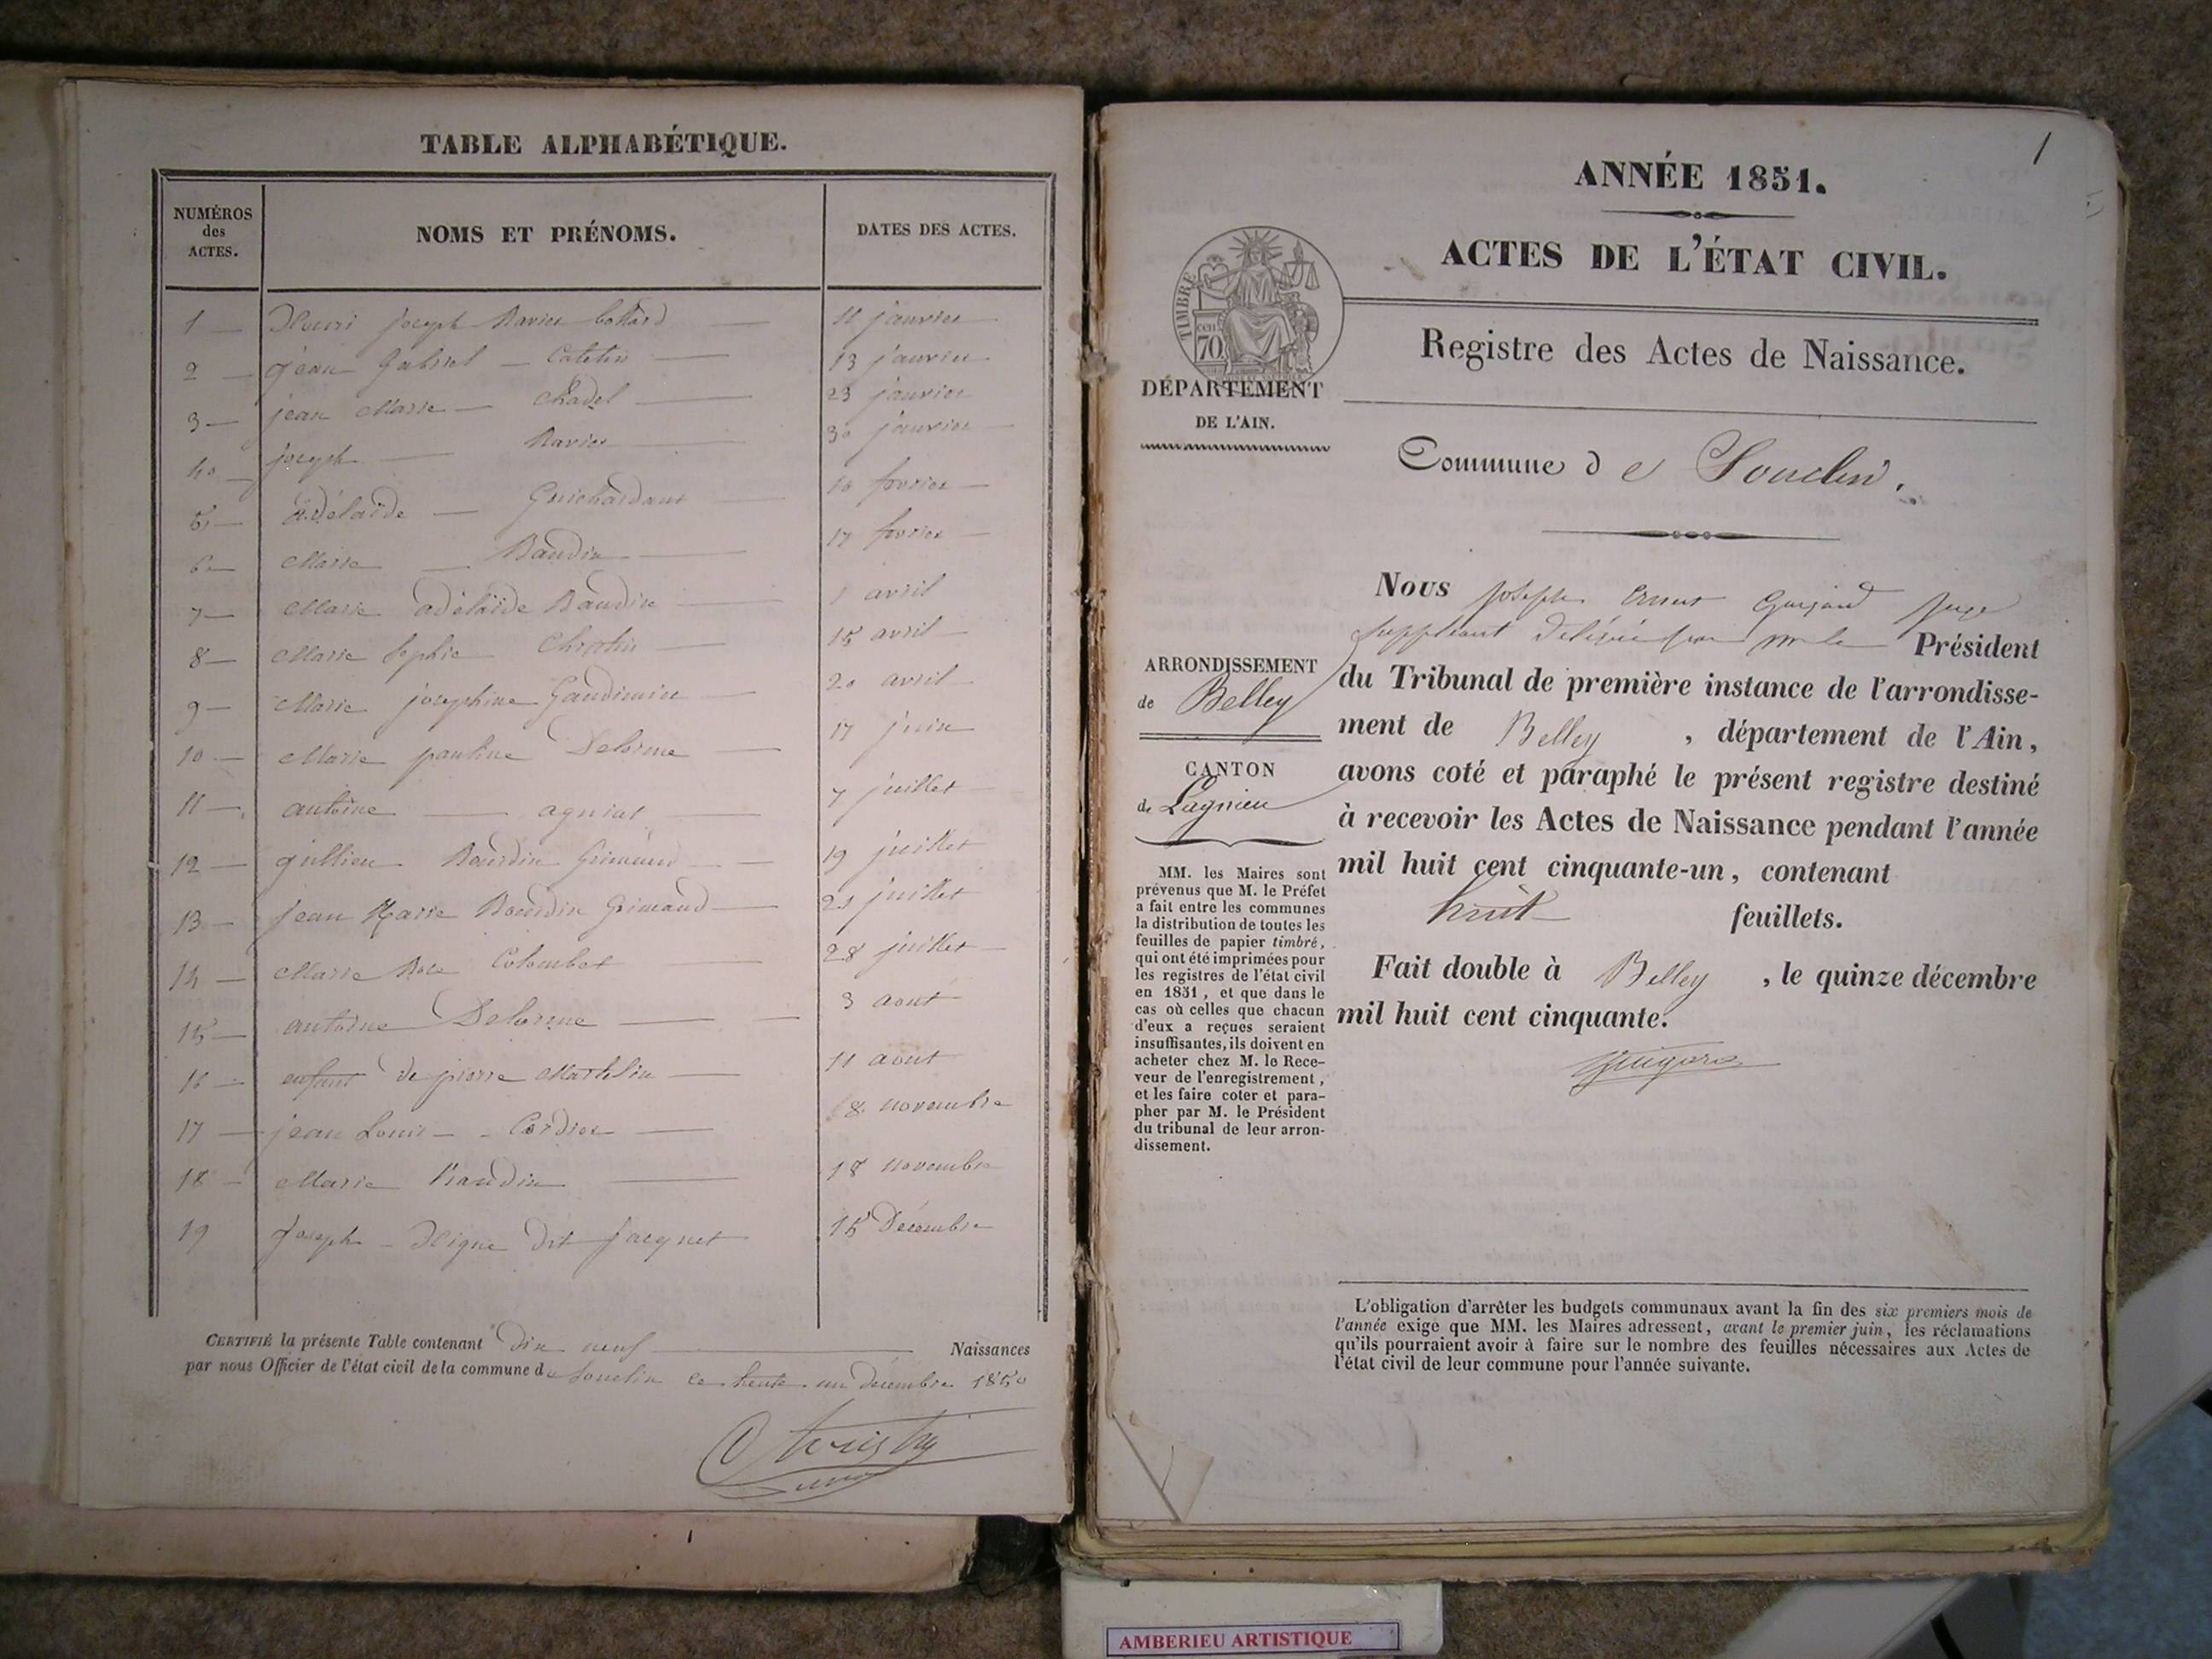 TABLE ALPHABÉTIQUE.
NUMÉROS
des
ACTES.
NOMS ET PRÉNOMS.
DATES DES ACTES.
1 joseph Ravier 11 janvier
2 jean Gabriel 13 janvier
3 jean Marie Chadel 23 janvier
4 joseph Ravier 30 janvier
5 adélaïde Guichardant 10 fevrier
6 Marie Baudin 17 fevrier
7 Marie adélaïde Baudin 1 avril
8 Marie Sophie 15 avril
9 Marie josephine 20 avril
10 Marie pauline Delorme 17 juin
11 antoine agniat 7 juillet
12 Grimaud 19 juillet
13 jean Marie Grimaud 21 juillet
14 Marie Rose Colombet 28 juillet
15 antoine Delorme 3 aout
16 enfant de pierre 11 aout
17 jean Louis Cordier 8 novembre
18 Marie Baudin 18 novembre
19 Joseph dit Jacquet 15 Décembre
CERTIFIÉ la présente Table contenant Dix neuf Naissances
par nous Officier de l'état civil de la commune de Souclin ce trente un décembre 1850
1
ANNÉE 1851.
ACTES DE L'ÉTAT CIVIL.
TIMBRE
70
Registre des Actes de Naissance.
DÉPARTEMENT
DE L'AIN.
Commune de Souclin.
Nous Joseph Juge
suppléant Président
ARRONDISSEMENT
de Belley
du Tribunal de première instance de l'arrondisse-
ment de Belley, département de l'Ain,
CANTON
de Lagnieu
avons coté et paraphé le présent registre destiné
à recevoir les Actes de Naissance pendant l'année
mil huit cent cinquante-un, contenant
huit feuillets.
Fait double à Belley, le quinze décembre
mil huit cent cinquante.
MM. les Maires sont
prévenus que M. le Préfet
a fait entre les communes
la distribution de toutes les
feuilles de papier timbré,
qui ont été imprimées pour
les registres de l'état civil
en 1851, et que dans le
cas où celles que chacun
d'eux a reçues seraient
insuffisantes, ils doivent en
acheter chez M. le Rece-
veur de l'enregistrement,
et les faire coter et para-
pher par M. le Président
du tribunal de leur arron-
dissement.
L'obligation d'arrêter les budgets communaux avant la fin des six premiers mois de
l'année exige que MM. les Maires adressent, avant le premier juin, les réclamations
qu'ils pourraient avoir à faire sur le nombre des feuilles nécessaires aux Actes de
l'état civil de leur commune pour l'année suivante.
AMBERIEU ARTISTIQUE